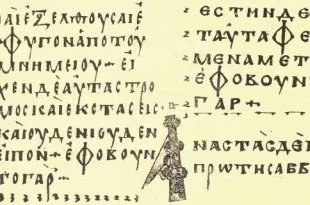 ΑΙΕΞΕΛΘΟΥΣΑΙΕ
ΦΥΓΟΝΑΠΟΤΟΥ
ΜΝΗΜΕΙΟΥ+ΕΙ
ΧΕΝΔΕΑΥΤΑΣΤΡΟ
ΜΟΣΚΑΙΕΚΣΤΑΣΕΙΣ
ΚΑΙΟΥΔΕΝΙΟΥΔΕΝ
ΕΙΠΟΝ+ΕΦΟΒΟΥΝ
ΤΟΓΑΡ+
ΕΣΤΙΝΔΕ
ΤΑΥΤΑΦΕ
ΜΕΝΑΜΕΤ
ΕΦΟΒΟΥΝ
ΓΑΡ+
ΑΝΑΣΤΑΣΔΕ
ΠΡΩΤΗΣΑΒΒ